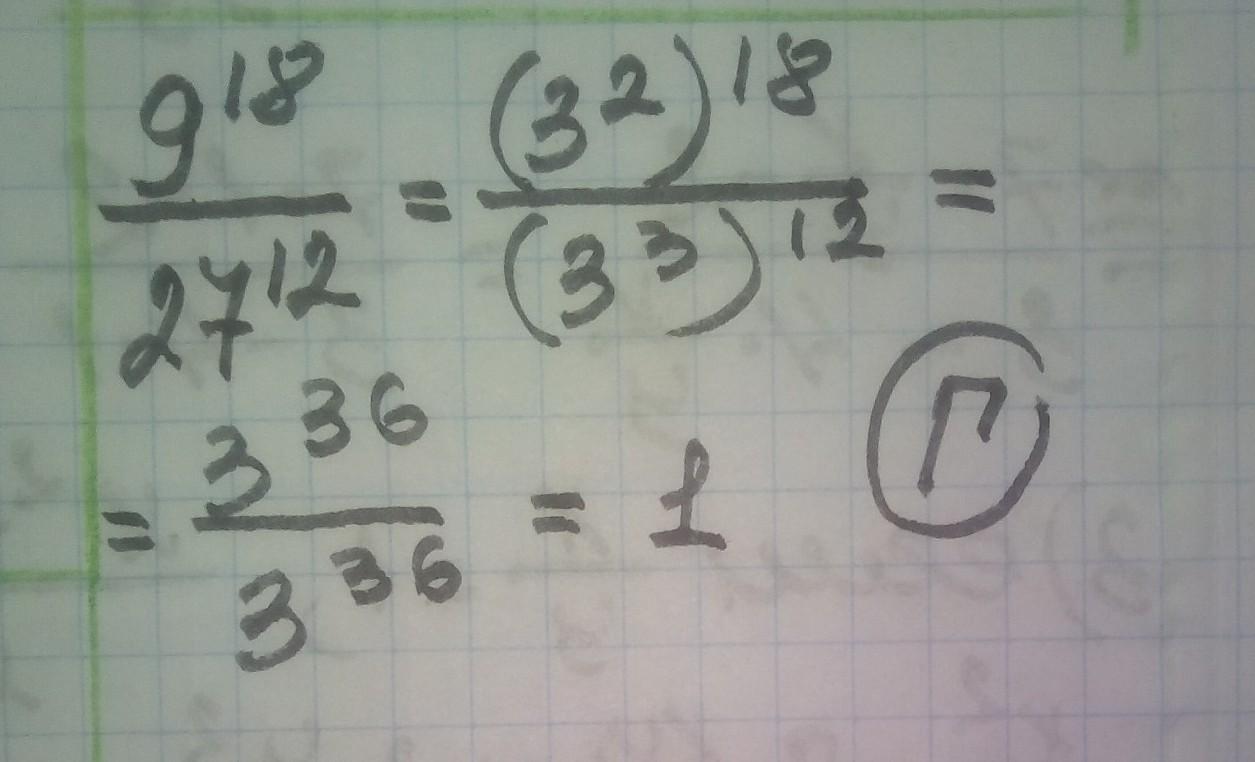 9^18 / 27^12 = (3^2)^18 / (3^3)^12 =
= 3^36 / 3^36 = 1 Г